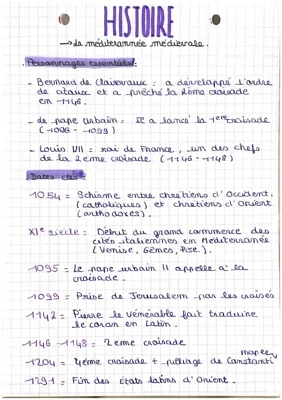 HISTOIRE
→ la méditerrannée médiévale.
Personnages essentiels :
- Bernard de Clairevaux : a développé l'ordre
de cîteaux et a prêché la 2ème croisade
en 1146.
- Le pape Urbain : Il a lancé la 1ère croisade
(1096 - 1099)
- Louis VII : roi de France, un des chefs
de la 2ème croisade (1146 - 1148)
Dates clés :
1054 = Schisme entre chrétiens d'Occident,
(catholiques) et chrétiens d'Orient
(orthodoxes).
XIe siècle = Début du grand commerce des
cités italiennes en Méditerranée
(Venise, Gênes, Pise).
1095 = Le pape urbain II appelle à la
croisade.
1099 = Prise de Jerusalem par les croisés
1142 = Pierre le Vénérable fait traduire
le coran en Latin.
1146 - 1148 = 2ème croisade
1204 = 4ème croisade + pillage de Constanti
1291 = Fin des États latins d'Orient.